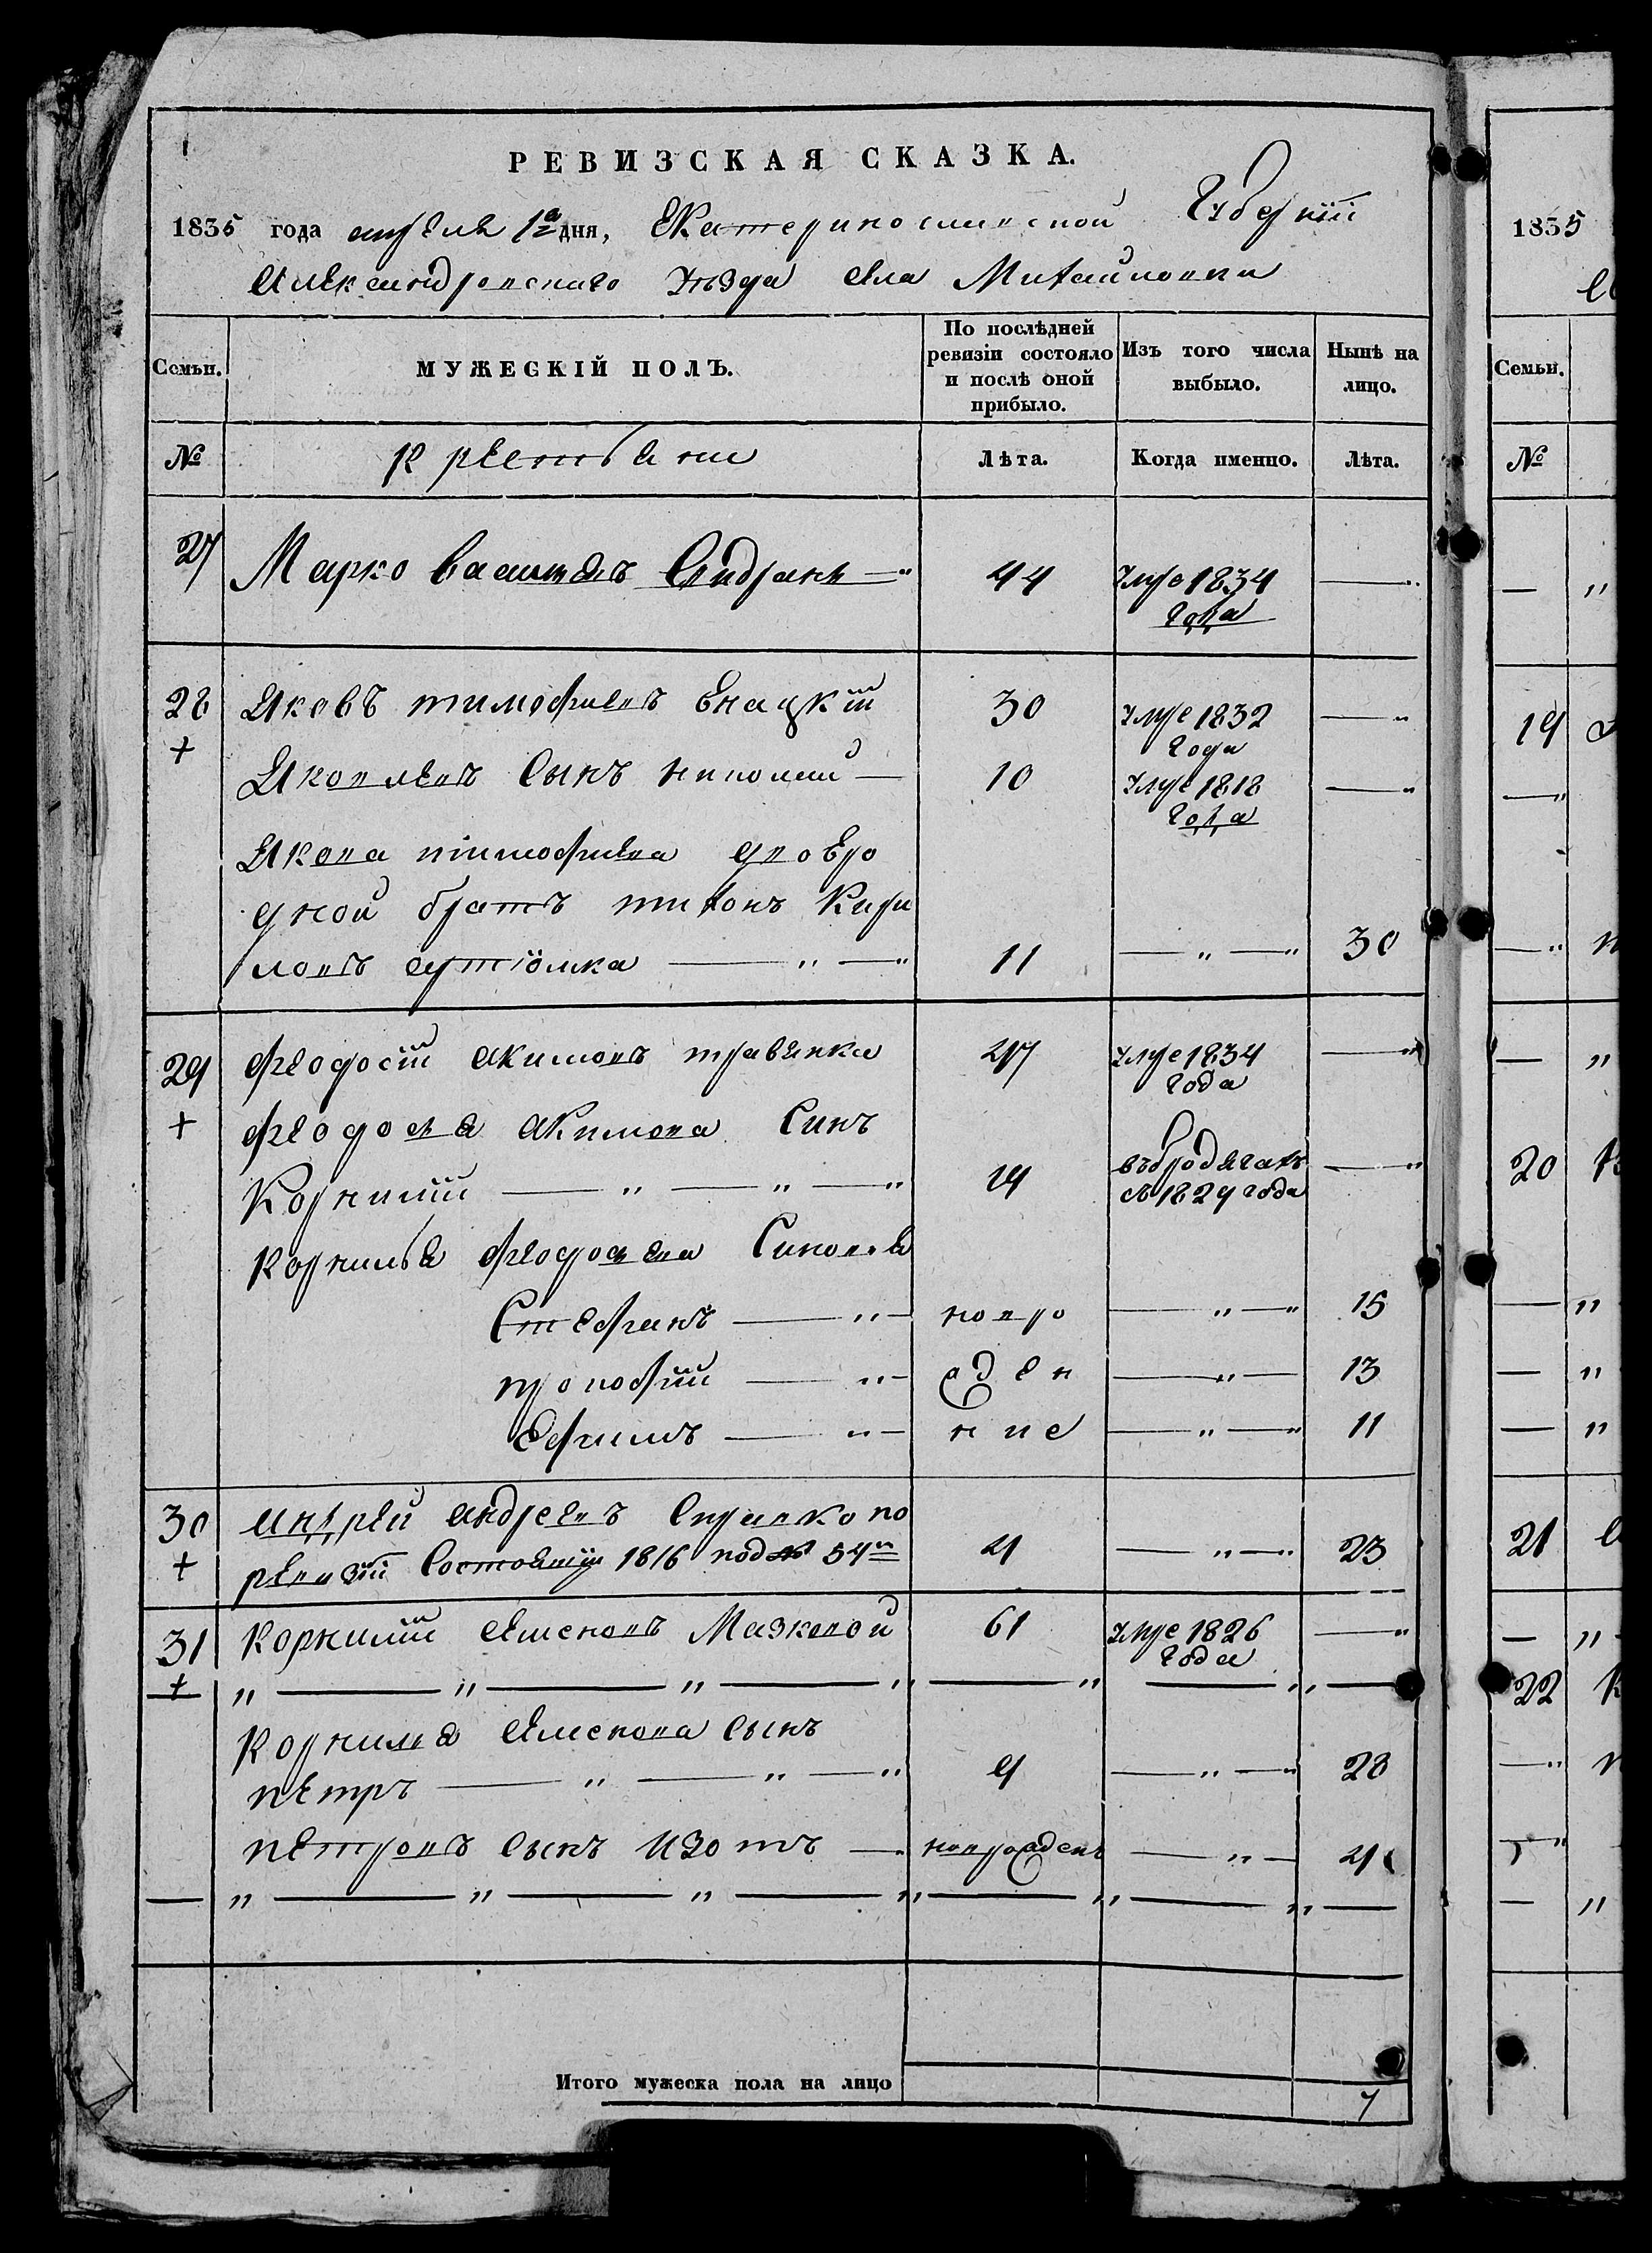 РЕВИЗСКАЯ СКАЗКА.
1835 года апреля 1а дня, Екатеринославской Губернiи
Александровскаго уѣзда села Михайловки
Семьи.
МУЖЕСКIЙ ПОЛЪ.
По послѣдней ревизiи состояло и послѣ оной прибыло.
Изъ того числа выбыло.
Нынѣ на лицо.
№ крестьяне Лѣта. Когда именно. Лѣта.
27 Марко васильевъ 44 умре 1834
года
28 Яковъ тимофиевъ 30 умре 1832
года
Яковлевъ сынъ николай 10 умре 1818
года
Якова тимофиева двоюро
дной братъ тихонъ Кири
ловъ 11 30
29 феодосiй акимовъ 47 умре 1834
года
феодосiя акимова синъ
Корнилiй 19 въбродягахъ
съ 1829 года
Корнилья феодосiева синовья
Стефанъ новро 15
прокофiй жден 13
Ефимъ ние 11
30 андрей андреевъ по
ревизiи состоявшiй 1816 под № 34м 4 23
31 Корнилiй 61 умре 1826
года
Корнилiя сынъ
пЕтръ 9 28
пЕтровъ сынъ изотъ новрожденъ 4
Итого мужеска пола на лицо 7
1835
Семьи.
№
19
20
21
22